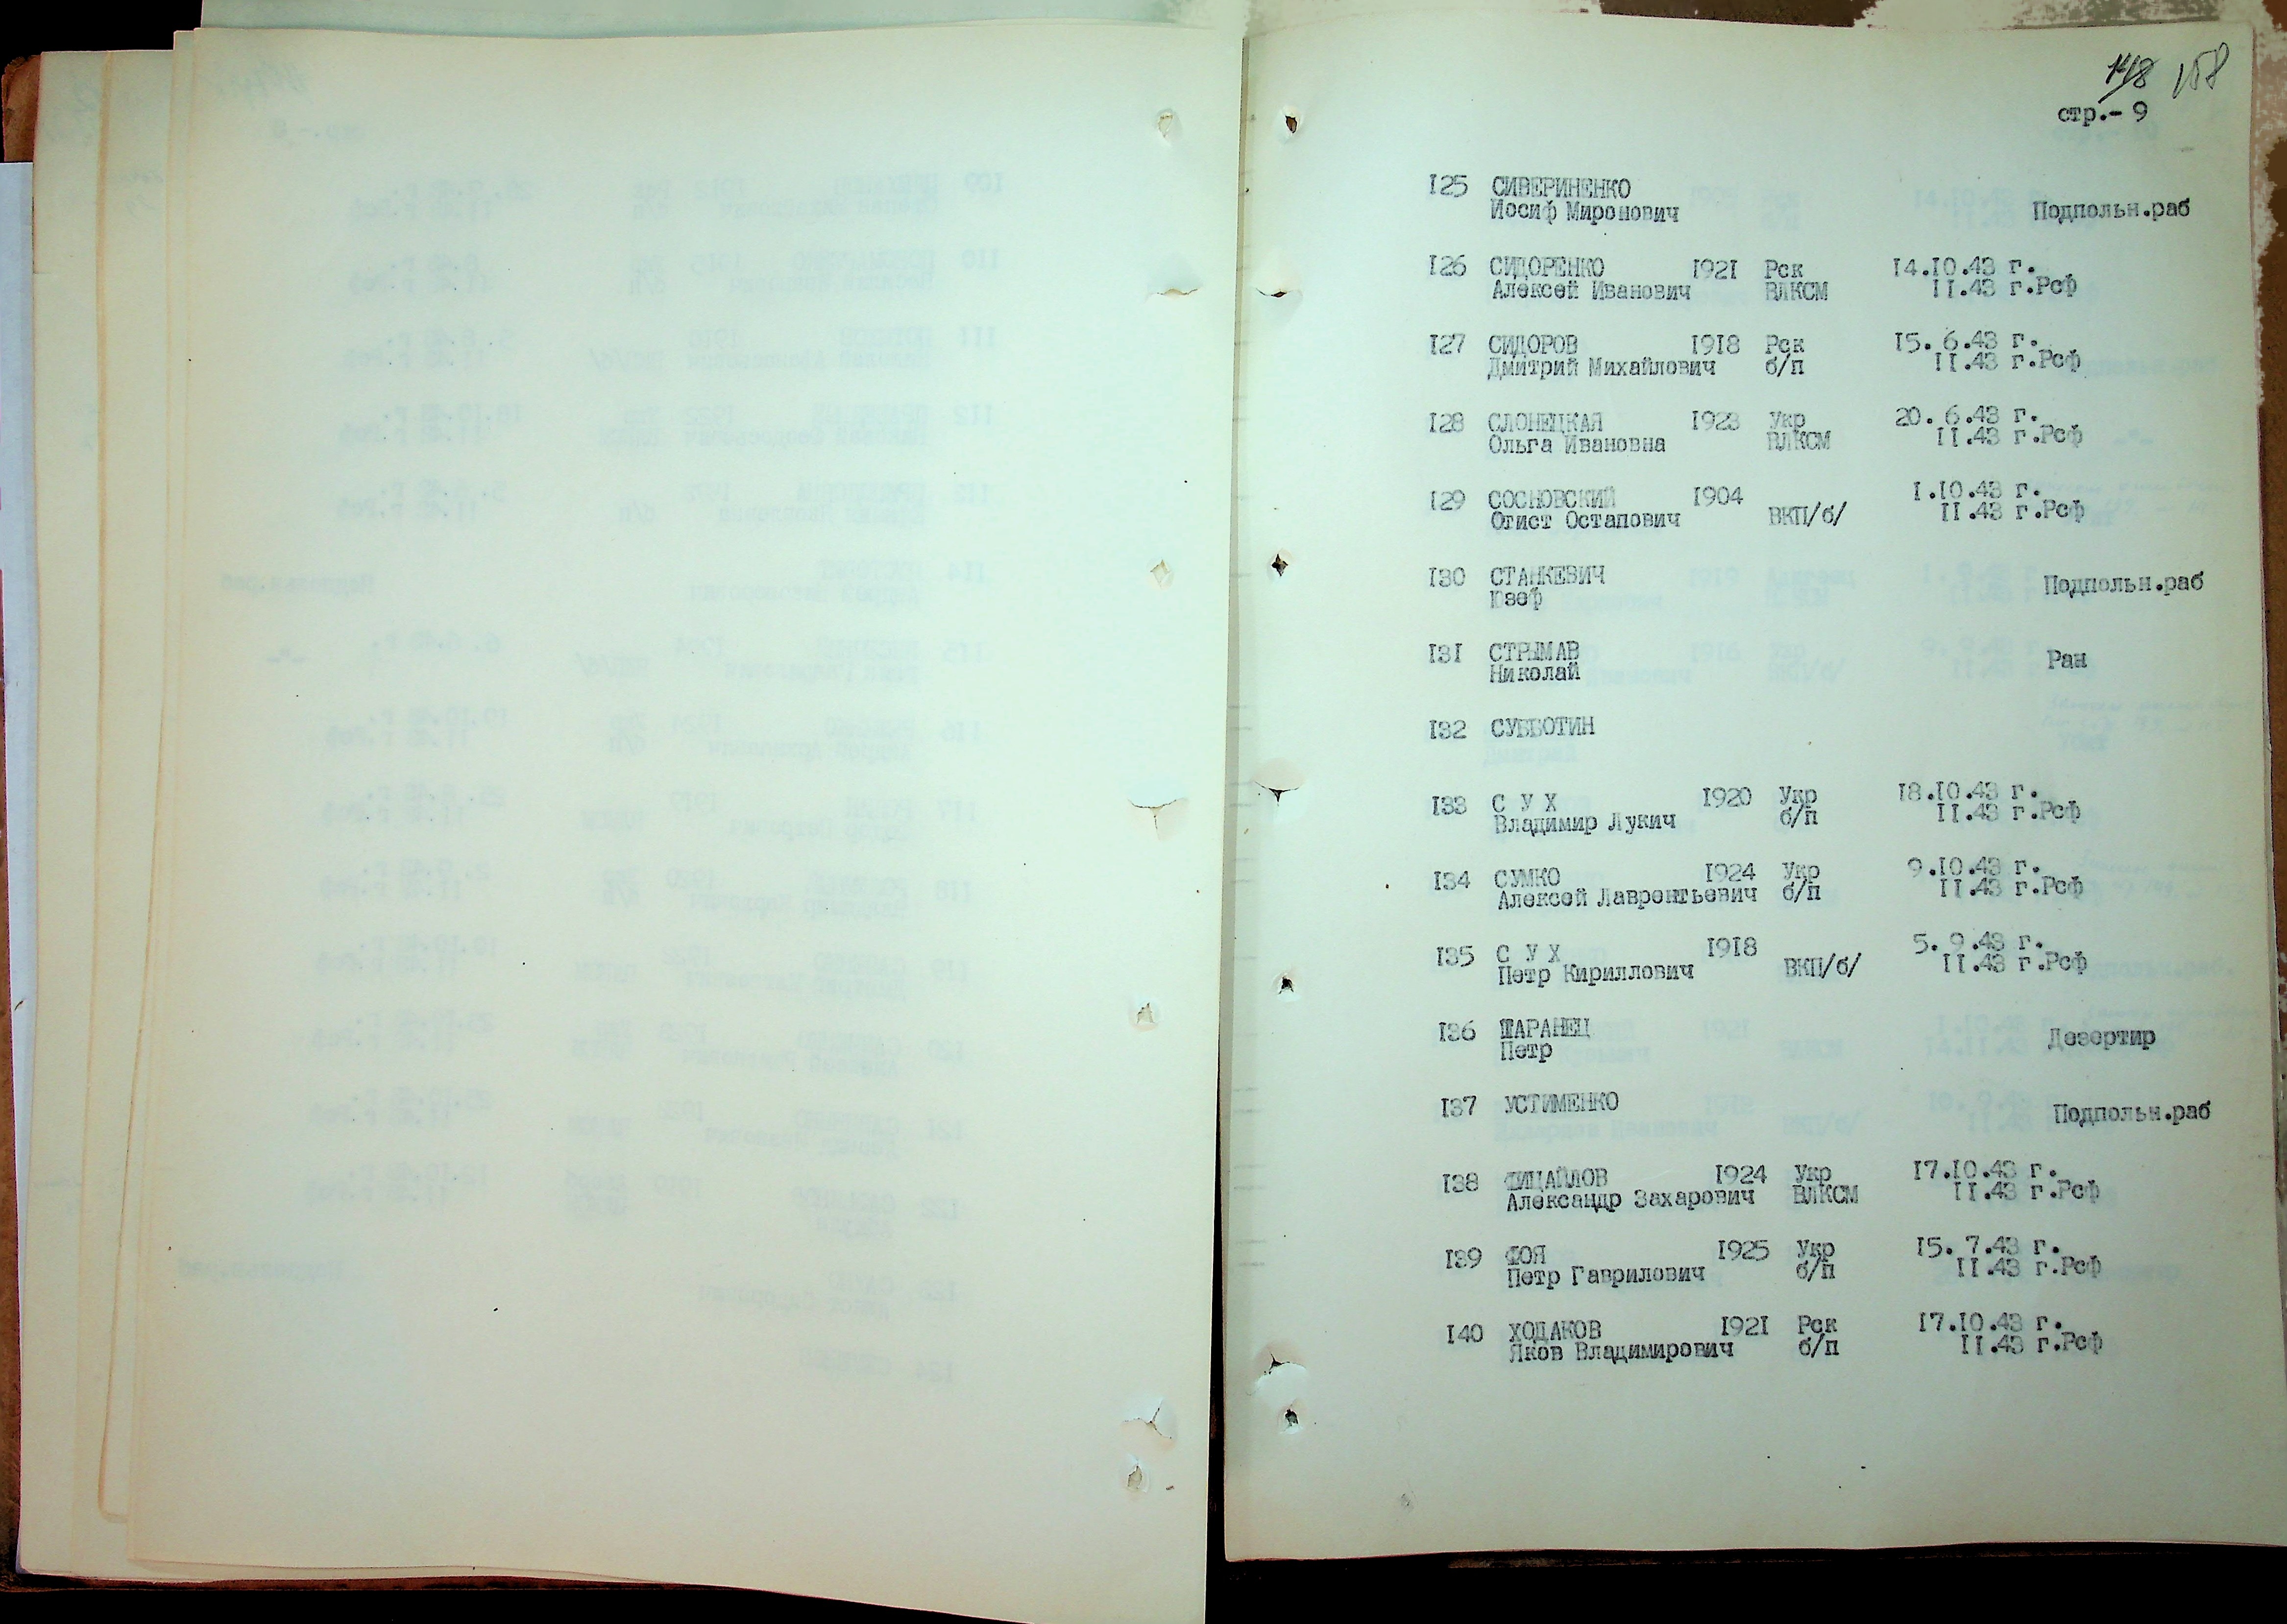 148 158
стр.- 9
125 СИВЕРИНЕНКО
Иосиф Миронович Подпольн.раб
126 СИДОРЕНКО 1921 Рск 14.10.43 г.
Алексей Иванович ВЛКСМ 11.43 г.Рсф
127 СИДОРОВ 1918 Рск 15. 6.43 г.
Дмитрий Михайлович б/п 11.43 г.Рсф
128 СЛОНЕЦКАЯ 1923 Укр 20. 6.43 г.
Ольга Ивановна ВЛКСМ 11.43 г.Рсф
129 СОСНОВСКИЙ 1904 1.10.43 г.
Огист Остапович ВКП/б/ 11.43 г.Рсф
130 СТАНКЕВИЧ
Юзеф Подпольн.раб
131 СТРЫМАВ
Николай Ран
132 СУББОТИН
133 С У Х 1920 Укр 18.10.43 г.
Владимир Лукич б/п 11.43 г.Рсф
134 СУМКО 1924 Укр 9.10.43 г.
Алексей Лаврентьевич б/п 11.43 г.Рсф
135 С У Х 1918 5. 9.43 г.
Петр Кириллович ВКП/б/ 11.43 г.Рсф
136 ШАРАНЕЦ
Петр Дезертир
137 УСТИМЕНКО
Подпольн.раб
138 ФИЦАЙЛОВ 1924 Укр 17.10.43 г.
Александр Захарович ВЛКСМ 11.43 г.Рсф
139 ФОЯ 1925 Укр 15. 7.43 г.
Петр Гаврилович б/п 11.43 г.Рсф
140 ХОДАКОВ 1921 Рск 17.10.43 г.
Яков Владимирович б/п 11.43 г.Рсф